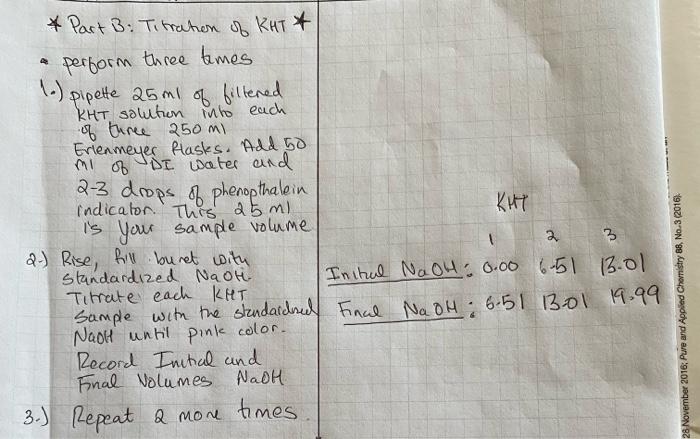 * Part B: Titration of KHT *
• perform three times
1.) pipette 25 ml of filtered
KHT solution into each
of three 250 ml
Erlenmeyer flasks. Add 50
ml of DI water and
2-3 drops of phenopthalein
indicator. This 25 ml
is your sample volume
2.) Rise, fill buret with
standardized NaOH.
Titrate each KHT
Sample with the standardized
NaOH until pink color.
Record Initial and
Final Volumes NaOH
3.) Repeat 2 more times.
KHT
1 2 3
Initial NaOH: 0.00 6.51 13.01
Final NaOH: 6.51 13.01 19.99
28 November 2016; Pure and Applied Chemistry 88, No.3 (2016).